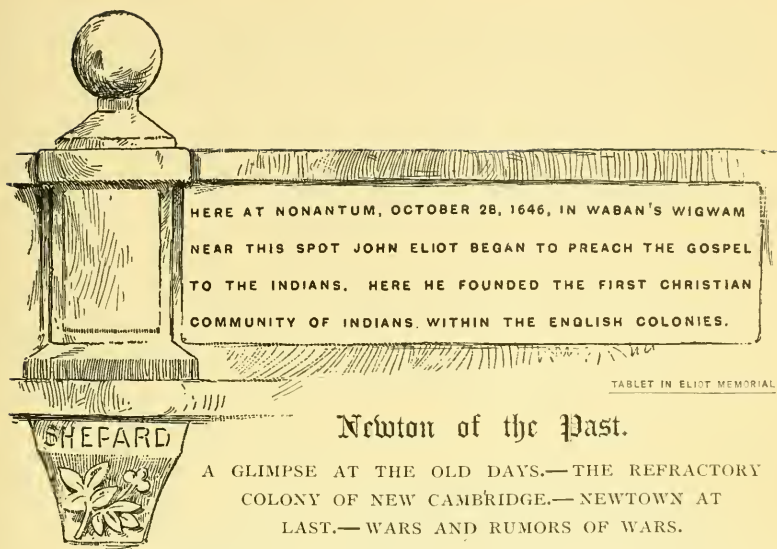 HERE AT NONANTUM, OCTOBER 28, 1646, IN WABAN'S WIGWAM
NEAR THIS SPOT JOHN ELIOT BEGAN TO PREACH THE GOSPEL
TO THE INDIANS. HERE HE FOUNDED THE FIRST CHRISTIAN
COMMUNITY OF INDIANS WITHIN THE ENGLISH COLONIES.
TABLET IN ELIOT MEMORIAL
SHEPARD
Newton of the Past.
A GLIMPSE AT THE OLD DAYS.—THE REFRACTORY
COLONY OF NEW CAMBRIDGE.—NEWTOWN AT
LAST.—WARS AND RUMORS OF WARS.